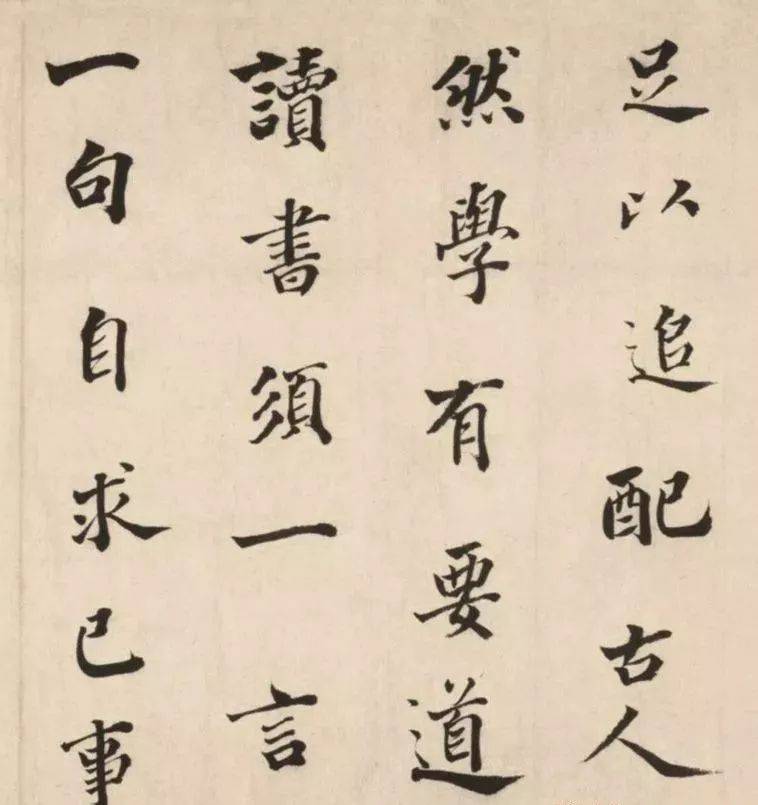 足以追配古人
然學有要道
讀書須一言
一句自求己事